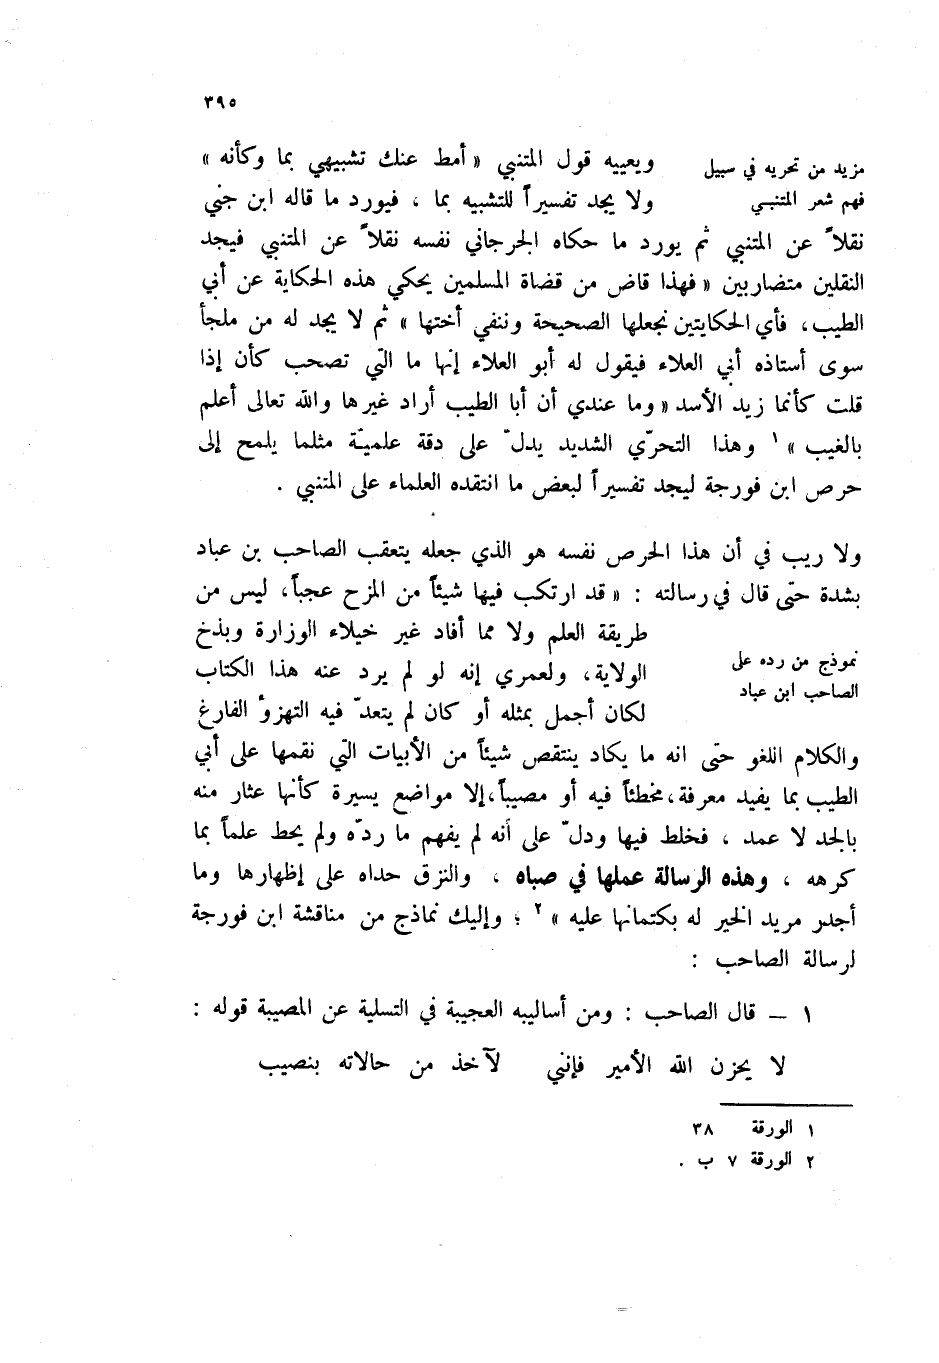 ٣٩٥
مزيد من تحريه في سبيل
فهم شعر المتنبي
ويعييه قول المتنبي « أمط عنك تشبيهي بما وكأنه »
ولا يجد تفسيراً للتشبيه بما ، فيورد ما قاله ابن جني
نقلاً عن المتنبي ثم يورد ما حكاه الجرجاني نفسه نقلاً عن المتنبي فيجد
النقلين متضاربين « فهذا قاض من قضاة المسلمين يحكي هذه الحكاية عن أبي
الطيب، فأي الحكايتين نجعلها الصحيحة وننفي أختها » ثم لا يجد له من ملجأ
سوى أستاذه أبي العلاء فيقول له أبو العلاء إنها ما التي تصحب كأن إذا
قلت كأنما زيد الأسد « وما عندي أن أبا الطيب أراد غيرها والله تعالى أعلم
بالغيب » ١ وهذا التحرّي الشديد يدلّ على دقة علميّة مثلما يلمح إلى
حرص ابن فورجة ليجد تفسيراً لبعض ما انتقده العلماء على المتنبي .
ولا ريب في أن هذا الحرص نفسه هو الذي جعله يتعقب الصاحب بن عباد
بشدة حتى قال في رسالته : « قد ارتكب فيها شيئاً من المزح عجباً، ليس من
نموذج من رده على
الصاحب ابن عباد
طريقة العلم ولا مما أفاد غير خيلاء الوزارة وبذخ
الولاية، ولعمري إنه لو لم يرد عنه هذا الكتاب
لكان أجمل بمثله أو كان لم يتعدّ فيه التهزؤ الفارغ
والكلام اللغو حتى انه ما يكاد ينتقص شيئاً من الأبيات التي نقمها على أبي
الطيب بما يفيد معرفة، مخطئاً فيه أو مصيباً،إلا مواضع يسيرة كأنها عثار منه
بالجد لا عمد ، فخلط فيها ودلّ على أنه لم يفهم ما ردّه ولم يحط علماً بما
كرهه ، وهذه الرسالة عملها في صباه ، والنزق حداه على إظهارها وما
أجدر مريد الخير له بكتمانها عليه » ٢ ؛ وإليك نماذج من مناقشة ابن فورجة
لرسالة الصاحب :
١ – قال الصاحب : ومن أساليبه العجيبة في التسلية عن المصيبة قوله :
لا يحزن الله الأمير فإنني لآخذ من حالاته بنصيب
١ الورقة ٣٨
٢ الورقة ٧ ب .